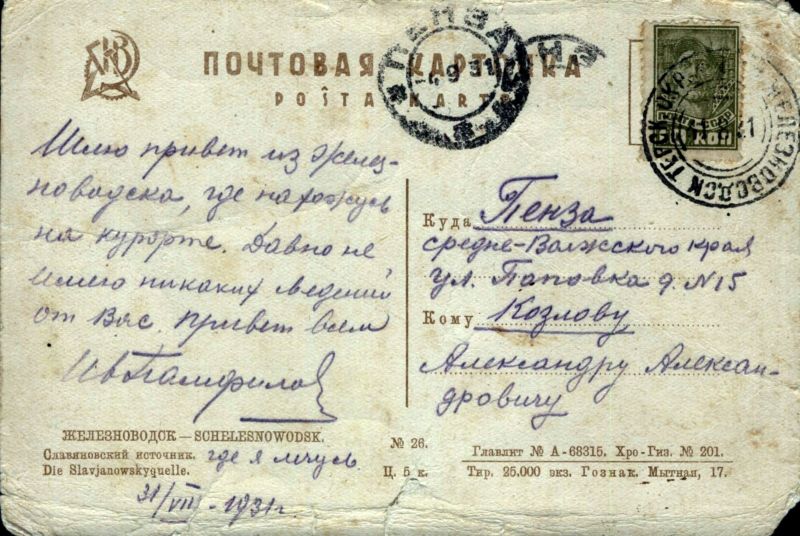 ПОЧТОВАЯ КАРТОЧКА
POŜTA KARTO
ПЕНЗА
4 9 31
ЖЕЛЕЗНОВОДСК ТЕРСК ОКР
КОП
Шлю привет из Желез-
новодска, где нахожусь
на курорте. Давно не
имею никаких сведений
от Вас. Привет всем
Ив Памфилов
Куда Пенза
средне-Волжского края
ул. Поповка д. N 15
Кому Козлову
Александру Алексан-
дровичу
ЖЕЛЕЗНОВОДСК — SCHELESNOWODSK.
Славяновский источник. где я лечусь
Die Slavjanowskyquelle.
31/VII - 1931 г.
№ 26.
Ц. 5 к.
Главлит № А-68315. Хро-Гиз. № 201.
Тир. 25.000 экз. Гознак. Мытная, 17.